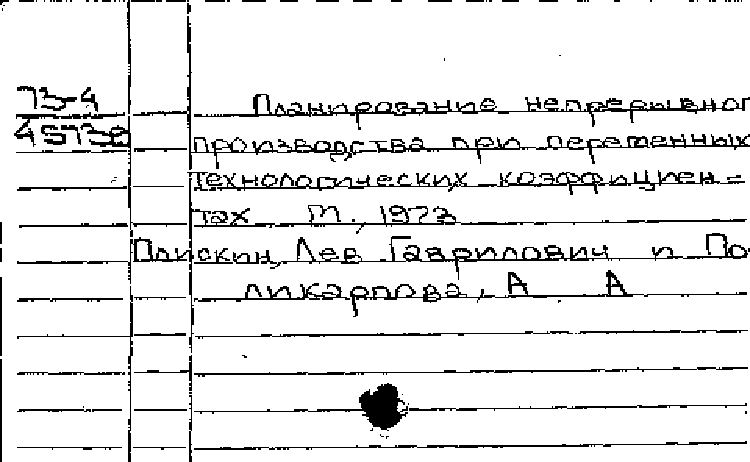 73-4
4573в
Планирование непрерывног
производства при переменных
технологических коэффициен=
тах М., 1973
Плискин, Лев Гаврилович и По
ликарпова, А А